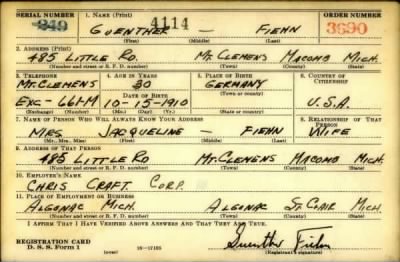 SERIAL NUMBER 1. NAME (Print) ORDER NUMBER
4114
GUENTHER — FIEHN
(First) (Middle) (Last)
2. ADDRESS (Print)
485 LITTLE RD. MT. CLEMENS MACOMB MICH.
(Number and street or R. F. D. number) (Town) (County) (State)
3. TELEPHONE 4. AGE IN YEARS 5. PLACE OF BIRTH 6. COUNTRY OF CITIZENSHIP
MT. CLEMENS 30 GERMANY
DATE OF BIRTH (Town or county)
EXC - 661-M 10-15-1910 U.S.A.
(Exchange) (Number) (Mo.) (Day) (Yr.) (State or country)
7. NAME OF PERSON WHO WILL ALWAYS KNOW YOUR ADDRESS 8. RELATIONSHIP OF THAT PERSON
MRS JACQUELINE — FIEHN WIFE
(Mr., Mrs., Miss) (First) (Middle) (Last)
9. ADDRESS OF THAT PERSON
485 LITTLE RD MT. CLEMENS MACOMB MICH.
(Number and street or R. F. D. number) (Town) (County) (State)
10. EMPLOYER'S NAME
CHRIS CRAFT CORP.
11. PLACE OF EMPLOYMENT OR BUSINESS
ALGONAC MICH. ALGONAC ST. CLAIR MICH
(Number and street or R. F. D. number) (Town) (County) (State)
I AFFIRM THAT I HAVE VERIFIED ABOVE ANSWERS AND THAT THEY ARE TRUE.
REGISTRATION CARD
D. S. S. Form 1 Guenther Fiehn
(over) (Registrant's signature)